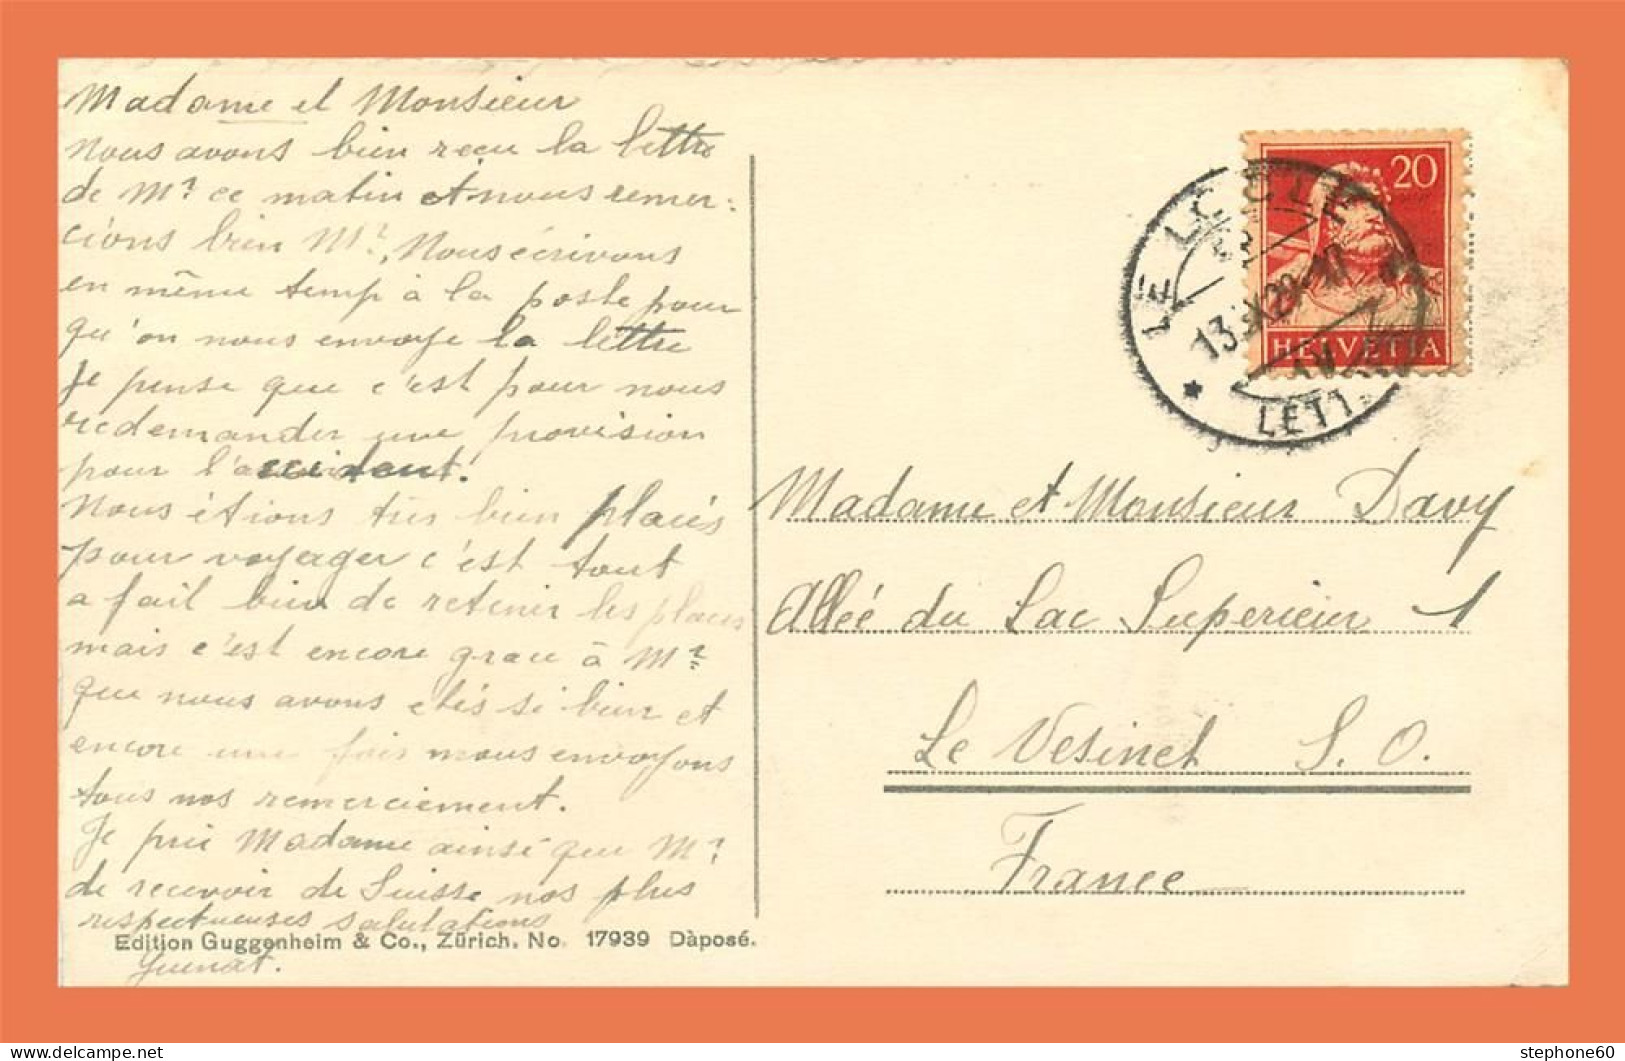 Madame et Monsieur
Nous avons bien reçu la lettre
de Mr ce matin et nous remer-
cions bien Mr, Nous écrivons
en même temp à la poste pour
qu'on nous envoye la lettre
Je pense que c'est pour nous
redemander une provision
pour l'accident.
Nous étions très bien placés
pour voyager c'est tout
a fait bien de retenir les places
mais c'est encore grace à Mr
que nous avons etés si bien et
encore une fois nous envoyons
tous nos remerciement.
Je prie Madame ainsi que Mr
de recevoir de Suisse nos plus
respectueuses salutations
Edition Guggenheim & Co., Zürich. No. 17939 Dàposé.
20
HELVETIA
LE LOCLE
13.X.29-17
LETT.
Madame et Monsieur Davy
Allée du Lac Superieur 1
Le Vesinet S. O.
France
stephone60